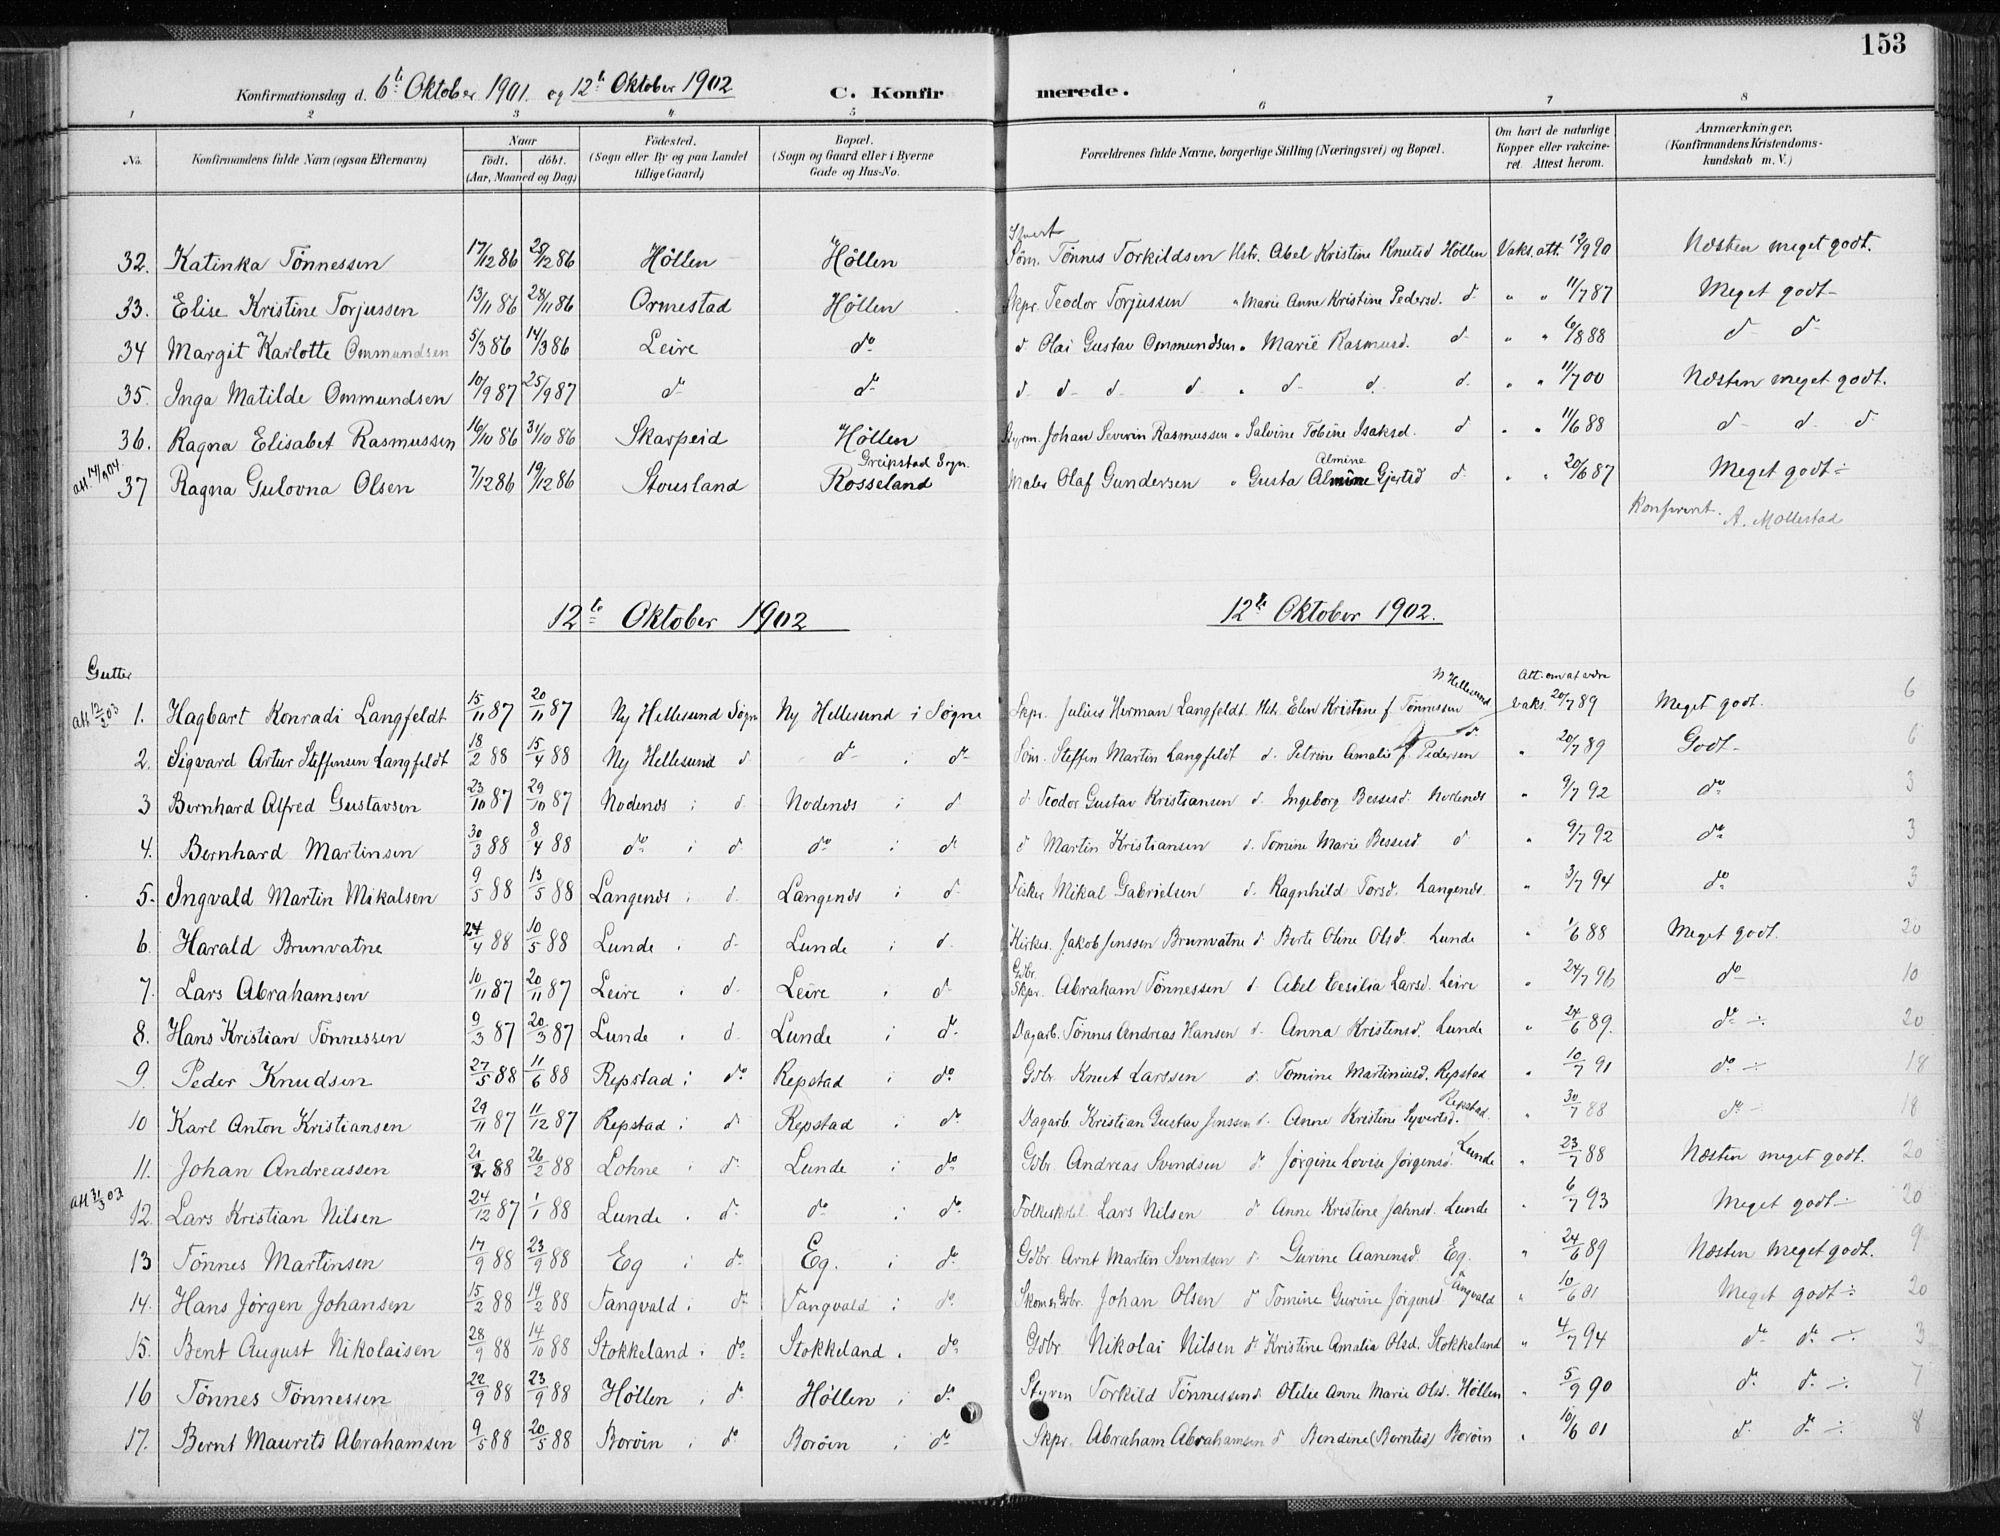 153
Konfirmationsdag d. 6te Oktober 1901. og 12te Oktober 1902 C. Konfirmerede.
1 2 3 4 5 6 7 8
No. Konfirmandens fulde Navn (ogsaa Efternavn) Naar født. døbt. (Aar, Maaned og Dag) Fødested. (Sogn eller By og paa Landet tillige Gaard) Bopæl. (Sogn og Gaard eller i Byerne Gade og Hus-No. Forældrenes fulde Navne, borgerlige Stilling (Næringsvei) og Bopæl. Om havt de naturlige Kopper eller vakcineret. Attest herom. Anmærkninger. (Konfirmandens Kristendomskundskab m. V.)
32. Katinka Tønnessen 17/12 86 28/12 86 Høllen Høllen Søm. Tønnes Torkildsen Hstr. Abel Kristine Knutsd Høllen Vaks. att. 12/9 90 Næsten meget godt.
33. Elise Kristine Torjussen 13/11 86 28/11 86 Ormestad Høllen Skpr. Teodor Torjussen " Marie Anne Kristine Pedersd. d. " " 11/7 87 Meget godt
34 Margit Karlotte Ommundsen 5/3 86 14/3 86 Leire do d Olai Gustav Ommundsen " Marie Rasmusd. d " " 6/8 88 d d
35. Inga Matilde Ommundsen 10/9 87 25/9 87 do do d d d d " d d. d. " " 11/7 00 Næsten meget godt.
36. Ragna Elisabet Rasmussen 16/10 86 31/10 86 Skarpeid Høllen Styrm. Johan Severin Rasmussen " Salvine Tobine Isaksd. d " " 11/6 88 d d d
att. 14/9 04. 37 Ragna Gulovna Olsen 7/12 86 19/12 86 Stousland Greipstad Sogn. Rosseland Maler Olaf Gundersen " Gusta Almine Gjertsd d " " 20/6 87 Meget godt ÷
Konfereret. A. Mollestad
12te Oktober 1902 12te Oktober 1902.
Gutter
att 12/3 03 1. Hagbart Konradi Langfeldt 15/11 87 20/11 87 Ny Hellesund Søgne Ny Hellesund i Søgne Skpr. Julius Herman Langfeldt Hstr. Elen Kristine f Tønnessen N Hellesund Att. om at være vaks. 20/7 89 Meget godt. 6
2. Sigvard Artur Steffensen Langfeldt 18/2 88 15/4 88 Ny Hellesund d do i do Søm. Steffen Martin Langfeldt d. Petrine Amalie f. Pedersen d. " 20/7 89 Godt 6
3 Bernhard Alfred Gustavsen 23/10 87 29/10 87 Nodenes i d. Nodenes i d d Teodor Gustav Kristiansen d. Ingeborg Bessesd. Nodenes " 9/7 92 do 3
4. Bernhard Martinsen 30/3 88 8/4 88 do i d do i d d Martin Kristiansen d. Tomine Marie Bessesd d " 9/7 92 do 3
5. Ingvald Martin Mikalsen 9/5 88 13/5 88 Langenes i d. Langenes i d. Fisker Mikal Gabrielsen d. Ragnhild Torsd. Langenes. " 3/7 94 do 3
6. Harald Brunvatne 24/4 88 10/5 88 Lunde i d. Lunde i d. Kirkes. Jakob Jenssen Brunvatne d Berte Oline Olsd. Lunde " 1/6 88 Meget godt. 20
7. Lars Abrahamsen 10/11 87 20/11 87 Leire i d. Leire i d Gdbr. Skpr. Abraham Tønnessen d Abel Cesilia Larsd. Leire " 24/7 96 do 10
8. Hans Kristian Tønnessen 9/3 87 20/3 87 Lunde i d. Lunde i do Dagarb. Tønnes Andreas Hansen d. Anna Kristensd. Lunde " 24/6 89. do ÷ 20
9. Peder Knudsen 27/5 88 11/6 88 Repstad i do Repstad i do Gdbr Knut Larssen d. Tomine Martiniusd. Repstad " 10/7 91 do ÷ 18
10 Karl Anton Kristiansen 29/11 87 11/12 87 Repstad i do Repstad i do Dagarb. Kristian Gustav Jenssen d. Anne Kristine Syvertsd. Repstad. " 30/7 88 do 18
11. Johan Andreassen 21/2 88 26/2 88 Lohne i d. Lunde i do Gdbr. Andreas Svendsen d. Jørgine Lovise Jørgensd. Lunde " 23/7 88 Næsten meget godt. 20
att 31/3 02 12. Lars Kristian Nilsen 24/12 87 1/1 88 Lunde i d do i do Lars Nilsen d Anne Kristine Jahnsd. Lunde " 6/7 93 Meget godt 20
13 Tønnes Martinsen 17/9 88 23/9 88 Eg i do Eg. i do Gdbr Arnt Martin Svendsen d. Gurine Aanensd. Eg. " 24/6 89 Næsten meget godt. 9
14. Hans Jørgen Johansen 15/2 88 19/2 88 Tangvald i do Tangvald i do Gdbr. Johan Olsen d Tomine Gurine Jørgensd Tangvald " 10/6 01 Meget godt ÷ 20
15. Bent August Nikolaisen 28/9 88 14/10 88 Stokkeland i do Stokkeland i do Gdbr Nikolai Nilsen d Kristine Amalia Olsd. Stokkeland " 4/7 94 do do ÷ 3
16 Tønnes Tønnessen 22/9 88 23/9 88 Høllen i do Høllen i do Torkild Tønnessen d Otilie Anne Marie Olsd. Høllen " 5/9 90 d. d. ÷ 7
17. Bernt Maurits Abrahamsen 9/5 88 20/5 88 Borøin i do Borøin i do Skpr. Abraham Abrahamsen d Bendine (Berntsd) Borøin " 10/6 01 d. do ÷ 8